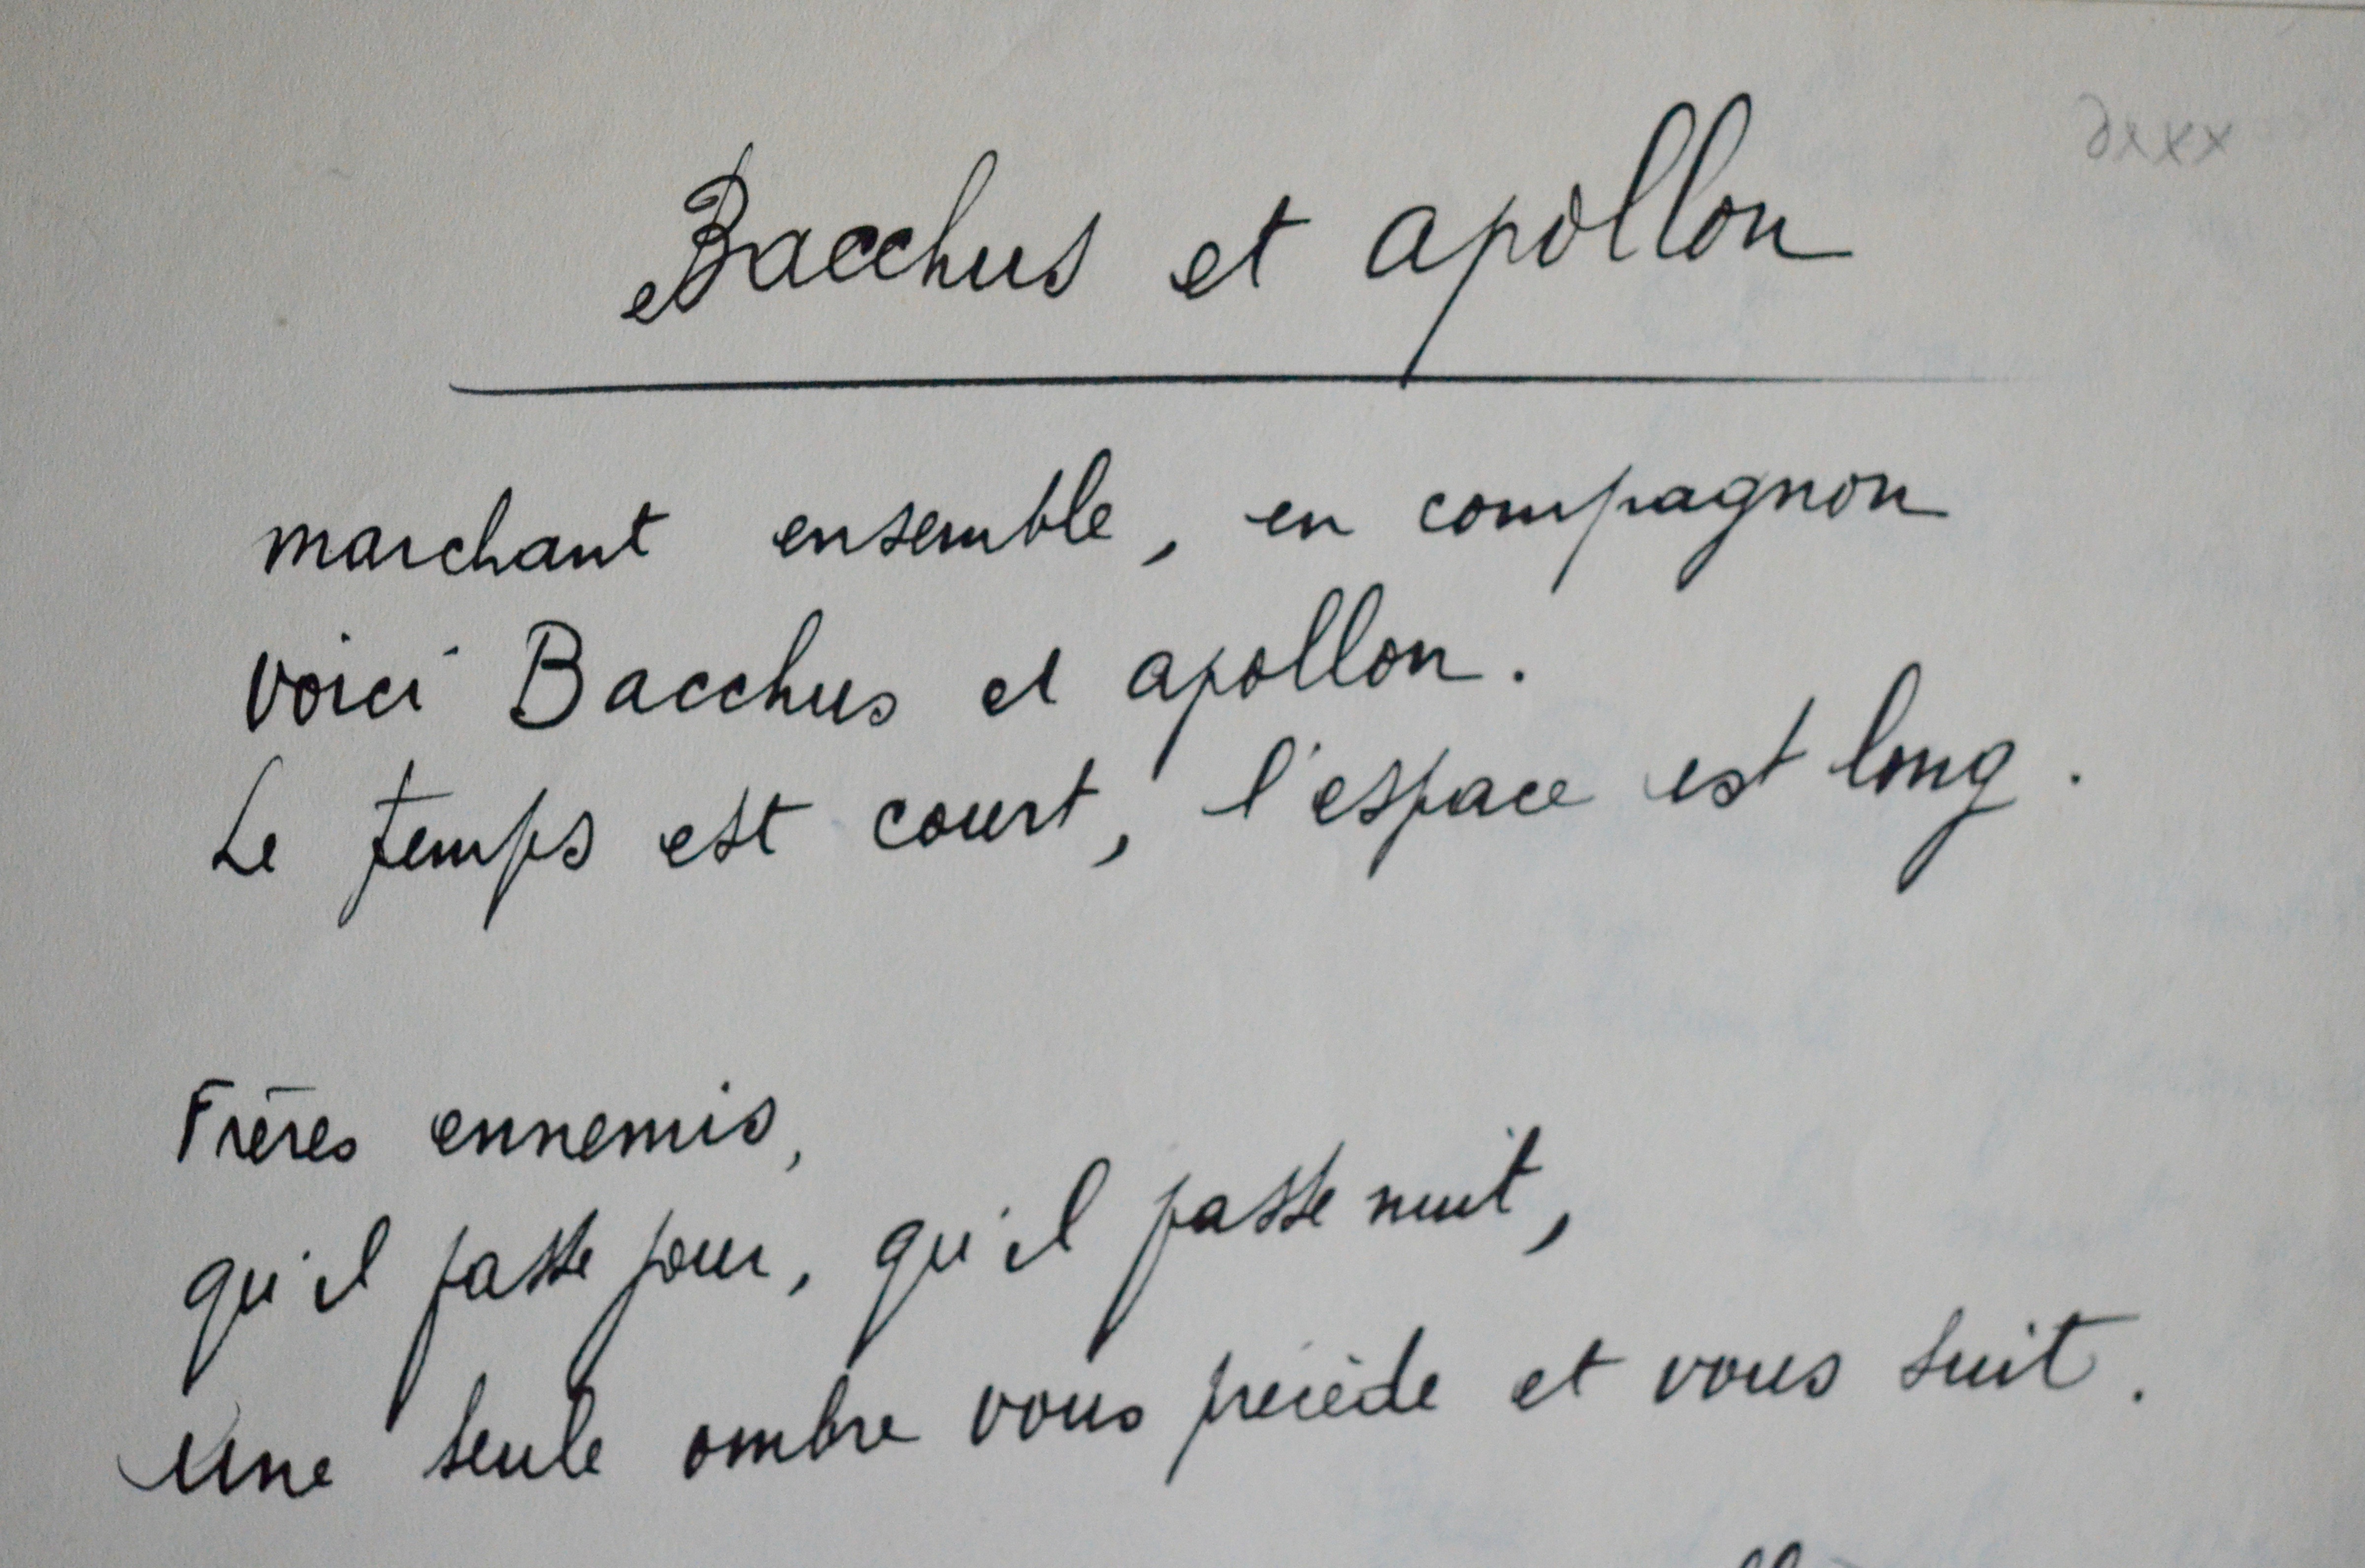 Bacchus et apollon
marchant ensemble, en compagnon
voici Bacchus et apollon.
Le temps est court, l'espace est long.
Frères ennemis,
qu'il passe jour, qu'il passe nuit,
une seule ombre vous précède et vous suit.